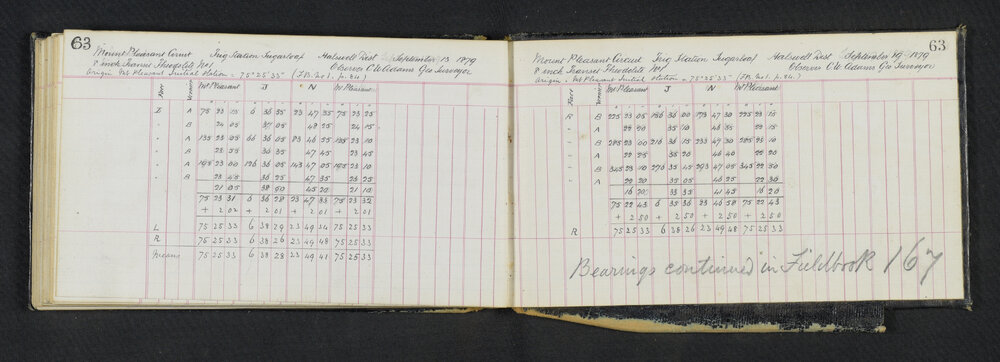 63
Mount Pleasant Circuit Trig Station Sugarloaf Halswell Dist September 13 1879
8 inch Transit Theodolite No 1 Observer C W Adams Geo Surveyor
Origin Mt Pleasant Initial Station = 75° 25' 33" (F.B. No 1. p. 84.)
Face Vernier Mt Pleasant J N Mt Pleasant
L A 75 23 10 6 36 35 23 47 35 75 23 25
" B 24 05 37 05 48 25 24 15
" A 135 23 05 66 36 05 83 46 55 135 23 10
" B 23 55 36 35 47 45 23 45
" A 195 23 00 126 36 05 143 47 05 195 23 10
" B 23 45 36 25 47 35 23 25
21 05 38 50 45 20 21 10
75 23 31 6 36 28 23 47 33 75 23 32
+ 2 02 + 2 01 + 2 01 + 2 01
L 75 25 33 6 38 29 23 49 34 75 25 33
R 75 25 33 6 38 26 23 49 48 75 25 33
Means 75 25 33 6 38 28 23 49 41 75 25 33
63
Mount Pleasant Circuit Trig Station Sugarloaf Halswell Dist September 1879
8 inch Transit Theodolite No 1 Observer C W Adams Geo Surveyor
Origin = Mt Pleasant Initial Station = 75° 25' 33" (F.B. No 1. p. 84.)
Face Vernier Mt Pleasant J N Mt Pleasant
R B 225 23 05 186 36 00 173 47 30 225 23 15
" A 22 20 35 10 46 35 22
" B 285 23 00 216 36 15 233 47 30 285 23 10
" A 22 25 35 20 46 40 22 20
" B 345 23 10 276 35 45 293 47 05 345 22 50
" A 22 20 35 05 46 25 22 30
16 20 33 35 41 45 16 20
75 22 43 6 35 36 23 46 58 75 22 43
+ 2 50 + 2 50 + 2 50 + 2 50
R 75 25 33 6 38 26 23 49 48 75 25 33
Bearings continued in Fieldbook 167